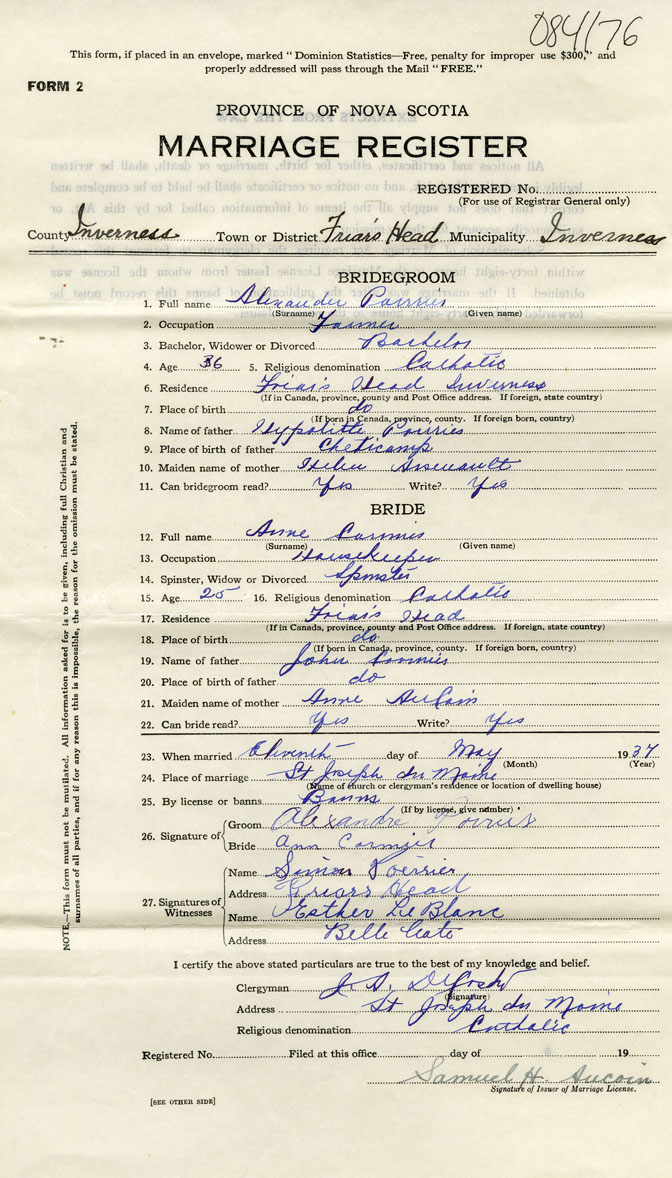 084176
This form, if placed in an envelope, marked "Dominion Statistics—Free, penalty for improper use $300," and
properly addressed will pass through the Mail "FREE."
FORM 2
PROVINCE OF NOVA SCOTIA
MARRIAGE REGISTER
REGISTERED No.
(For use of Registrar General only)
County Inverness Town or District Friar's Head Municipality Inverness
BRIDEGROOM
1. Full name Alexander Poirrier
(Surname) (Given name)
2. Occupation Farmer
3. Bachelor, Widower or Divorced Bachelor
4. Age 36 5. Religious denomination Catholic
6. Residence Friar's Head Inverness
(If in Canada, province, county and Post Office address. If foreign, state country)
7. Place of birth do
(If born in Canada, province, county. If foreign born, country)
8. Name of father Hypolitte Poirrier
9. Place of birth of father Cheticamp
10. Maiden name of mother Helen Arsenault
11. Can bridegroom read? Yes Write? Yes
BRIDE
12. Full name Anne Cormier
(Surname) (Given name)
13. Occupation Housekeeper
14. Spinster, Widow or Divorced Spinster
15. Age 25 16. Religious denomination Catholic
17. Residence Friar's Head
(If in Canada, province, county and Post Office address. If foreign, state country)
18. Place of birth do
(If born in Canada, province, county. If foreign born, country)
19. Name of father John Cormier
20. Place of birth of father do
21. Maiden name of mother Anne AuCoin
22. Can bride read? Yes Write? Yes
23. When married Eleventh day of May 1937
(Month) (Year)
24. Place of marriage St Joseph du Moine
(Name of church or clergyman's residence or location of dwelling house)
25. By license or banns Banns
(If by license, give number)
26. Signature of Groom Alexandre Poirier
Bride Ann Cormier
27. Signatures of Witnesses Name Simon Poirrier
Address Friars Head
Name Esther LeBlanc
Address Belle Cote
I certify the above stated particulars are true to the best of my knowledge and belief.
Clergyman J. A. DeCoste
(Signature)
Address St Joseph du Moine
Religious denomination Catholic
Registered No. Filed at this office day of 19
Samuel H. Aucoin
Signature of Issuer of Marriage License.
[SEE OTHER SIDE]
NOTE.—This form must not be mutilated. All information asked for is to be given, including full Christian and
surnames of all parties, and if for any reason this is impossible, the reason for the omission must be stated.